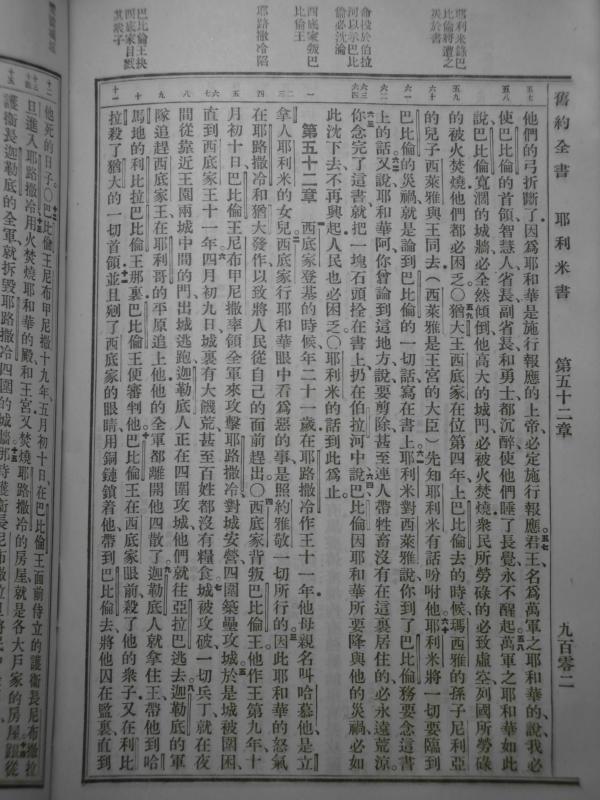 舊約全書 耶利米書 第五十二章 九百零二
耶利米錄巴
比倫將遭之
災於書
命投於伯拉
河以示巴比
倫必沈淪
西底家叛巴
比倫王
耶路撒冷陷
巴比倫王抉
西底家目戮
其衆子
他們的弓折斷了因爲耶和華是施行報應的上帝必定施行報應君王名爲萬軍之耶和華的說我必
使巴比倫的首領智慧人省長副省長和勇士都沉醉使他們睡了長覺永不醒起萬軍之耶和華如此
說巴比倫寬濶的城牆必全然傾倒他高大的城門必被火焚燒衆民所勞碌的必致虛空列國所勞碌
的被火焚燒他們都必困乏〇猶大王西底家在位第四年上巴比倫去的時候瑪西雅的孫子尼利亞
的兒子西萊雅與王同去(西萊雅是王宮的大臣)先知耶利米有話吩咐他耶利米將一切要臨到
巴比倫的災禍就是論到巴比倫的一切話寫在書上耶利米對西萊雅說你到了巴比倫務要念這書
上的話又說耶和華阿你曾論到這地方說要剪除甚至連人帶牲畜沒有在這裏居住的必永遠荒涼
你念完了這書就把一塊石頭拴在書上扔在伯拉河中說巴比倫因耶和華所要降與他的災禍必如
此沈下去不再興起人民也必困乏〇耶利米的話到此爲止
第五十二章 西底家登基的時候年二十一歲在耶路撒冷作王十一年他母親名叫哈慕他是立
拿人耶利米的女兒西底家行耶和華眼中看爲惡的事是照約雅敬一切所行的因此耶和華的怒氣
在耶路撒冷和猶大發作以致將人民從自己的面前趕出〇西底家背叛巴比倫王他作王第九年十
月初十日巴比倫王尼布甲尼撒率領全軍來攻擊耶路撒冷對城安營四圍築壘攻城於是城被圍困
直到西底家王十一年四月初九日城裏有大饑荒甚至百姓都沒有糧食城被攻破一切兵丁就在夜
間從靠近王園兩城中間的門出城逃跑迦勒底人正在四圍攻城他們就往亞拉巴逃去迦勒底的軍
隊追趕西底家王在耶利哥的平原追上他他的全軍都離開他四散了迦勒底人就拿住王帶他到哈
馬地的利比拉巴比倫王那裏巴比倫王便審判他巴比倫王在西底家眼前殺了他的衆子又在利比
拉殺了猶大的一切首領並且剜了西底家的眼睛用銅鏈鎖着他帶到巴比倫去將他囚在監裏直到
他死的日子〇巴比倫王尼布甲尼撒十九年五月初十日在巴比倫王面前侍立的護衛長尼布撒拉
旦進入耶路撒冷用火焚燒耶和華的殿和王宮又焚燒耶路撒冷的房屋就是各大戶家的房屋跟從
護衛長迦勒底的全軍就拆毀耶路撒冷四圍的城牆那時護衛長尼布撒拉旦將民中